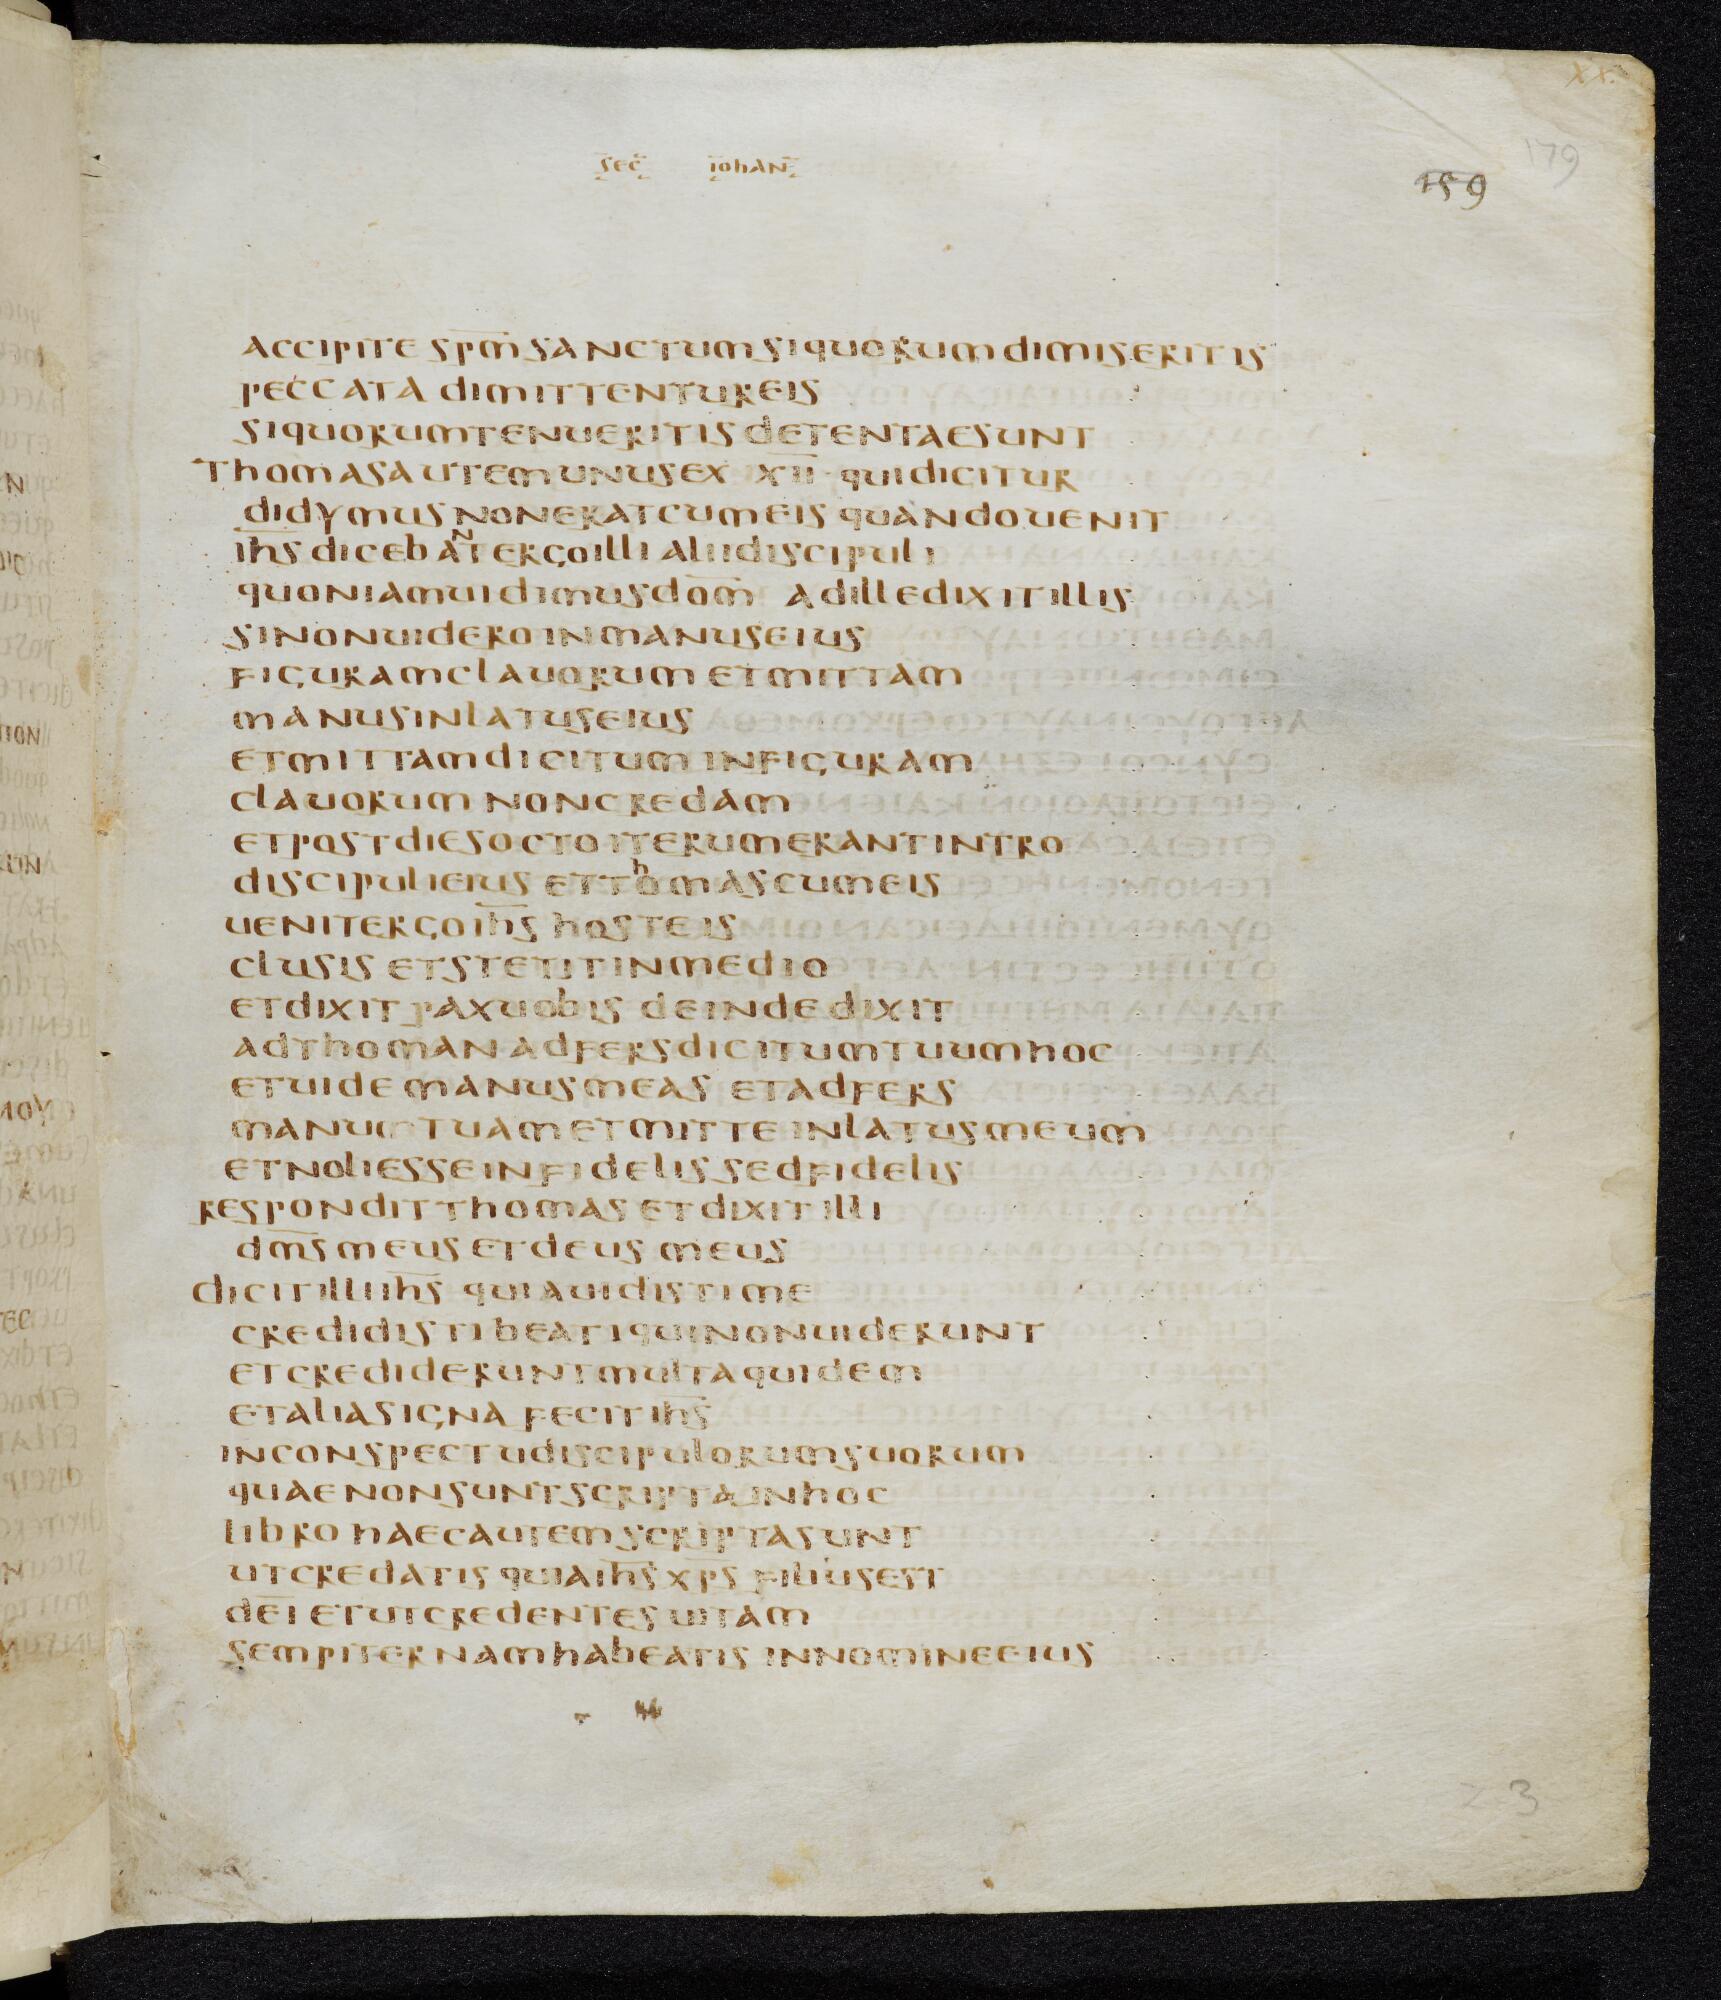 xx.
179
159
sec iohan
accipite spm̅ sanctum si quorum dimiseritis
peccata dimittentur eis
si quorum tenueritis detenta esunt
thomas autem unus ex xii qui dicitur
didymus non erat cum eis quando uenit
ihs dicebant ergo illi alii discipuli
quoniam uidimus dom̅ ad ille dixit illis
si non uidero in manus eius
figuram clauorum et mittam
manus in latus eius
et mittam dicitum in figuram
clauorum non credam
et post dies octo iterum erant intro
discipuli eius et thomas cum eis
uenit ergo ihs hosteis
clusis et stetit in medio
et dixit pax uobis deinde dixit
ad thoman adfers dicitum tuum hoc
et uide manus meas et adfers
manum tuam et mitte in latus meum
et noli esse infidelis sed fidelis
respondit thomas et dixit illi
dms meus et deus meus
dicit illi ihs quia uidisti me
credidisti beati qui non uiderunt
et crediderunt multa quidem
et alia signa fecit ihs
in conspectu discipulorum suorum
quae non sunt scripta in hoc
libro haec autem scripta sunt
ut credatis quia ihs xps filius est
dei et ut credentes uitam
sempiternam habeatis in nomine eius
23